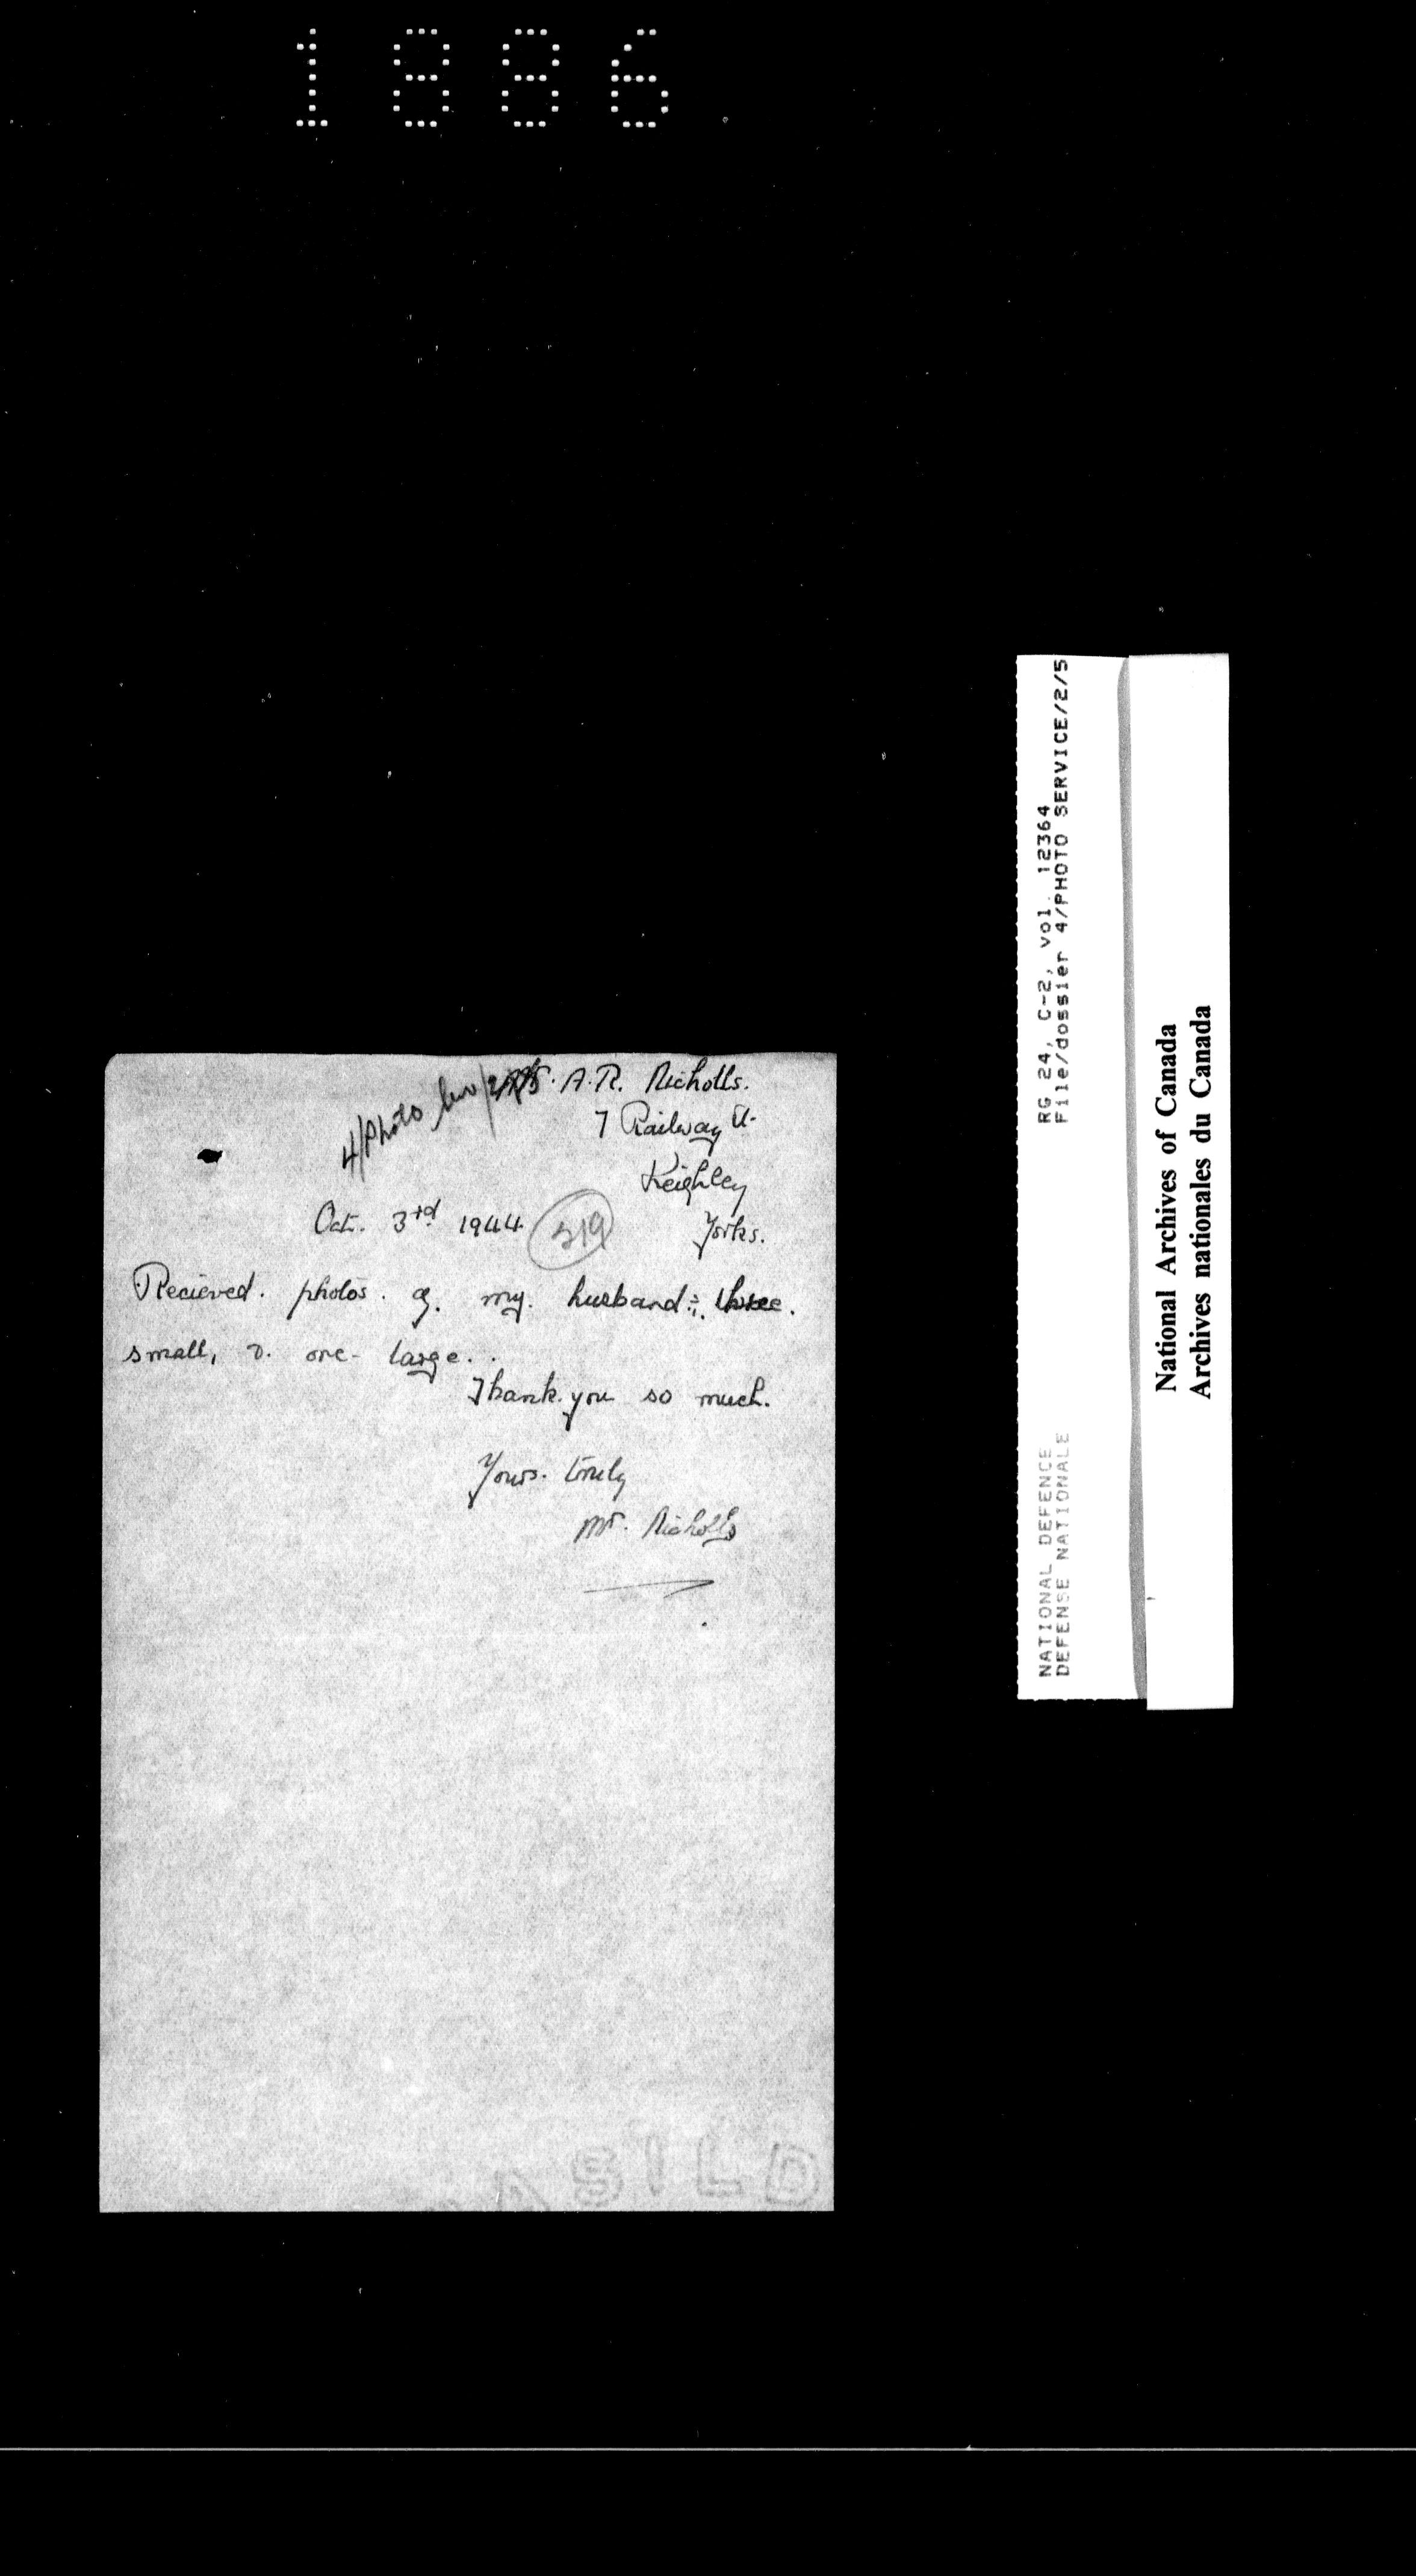 1886
4/Photo Serv/2/5
Mrs. A. R. Nicholls.
7 Railway St.
Keighley
Yorks.
Oct. 3rd 1944.
319
Recieved. photos. of. my. husband:. three.
small, & one- large..
Thank you so much.
Yours. truly
Mrs. Nicholls
RG 24, C-2, vol. 12364
File/dossier 4/PHOTO SERVICE/2/5
NATIONAL DEFENCE
DEFENSE NATIONALE
National Archives of Canada
Archives nationales du Canada